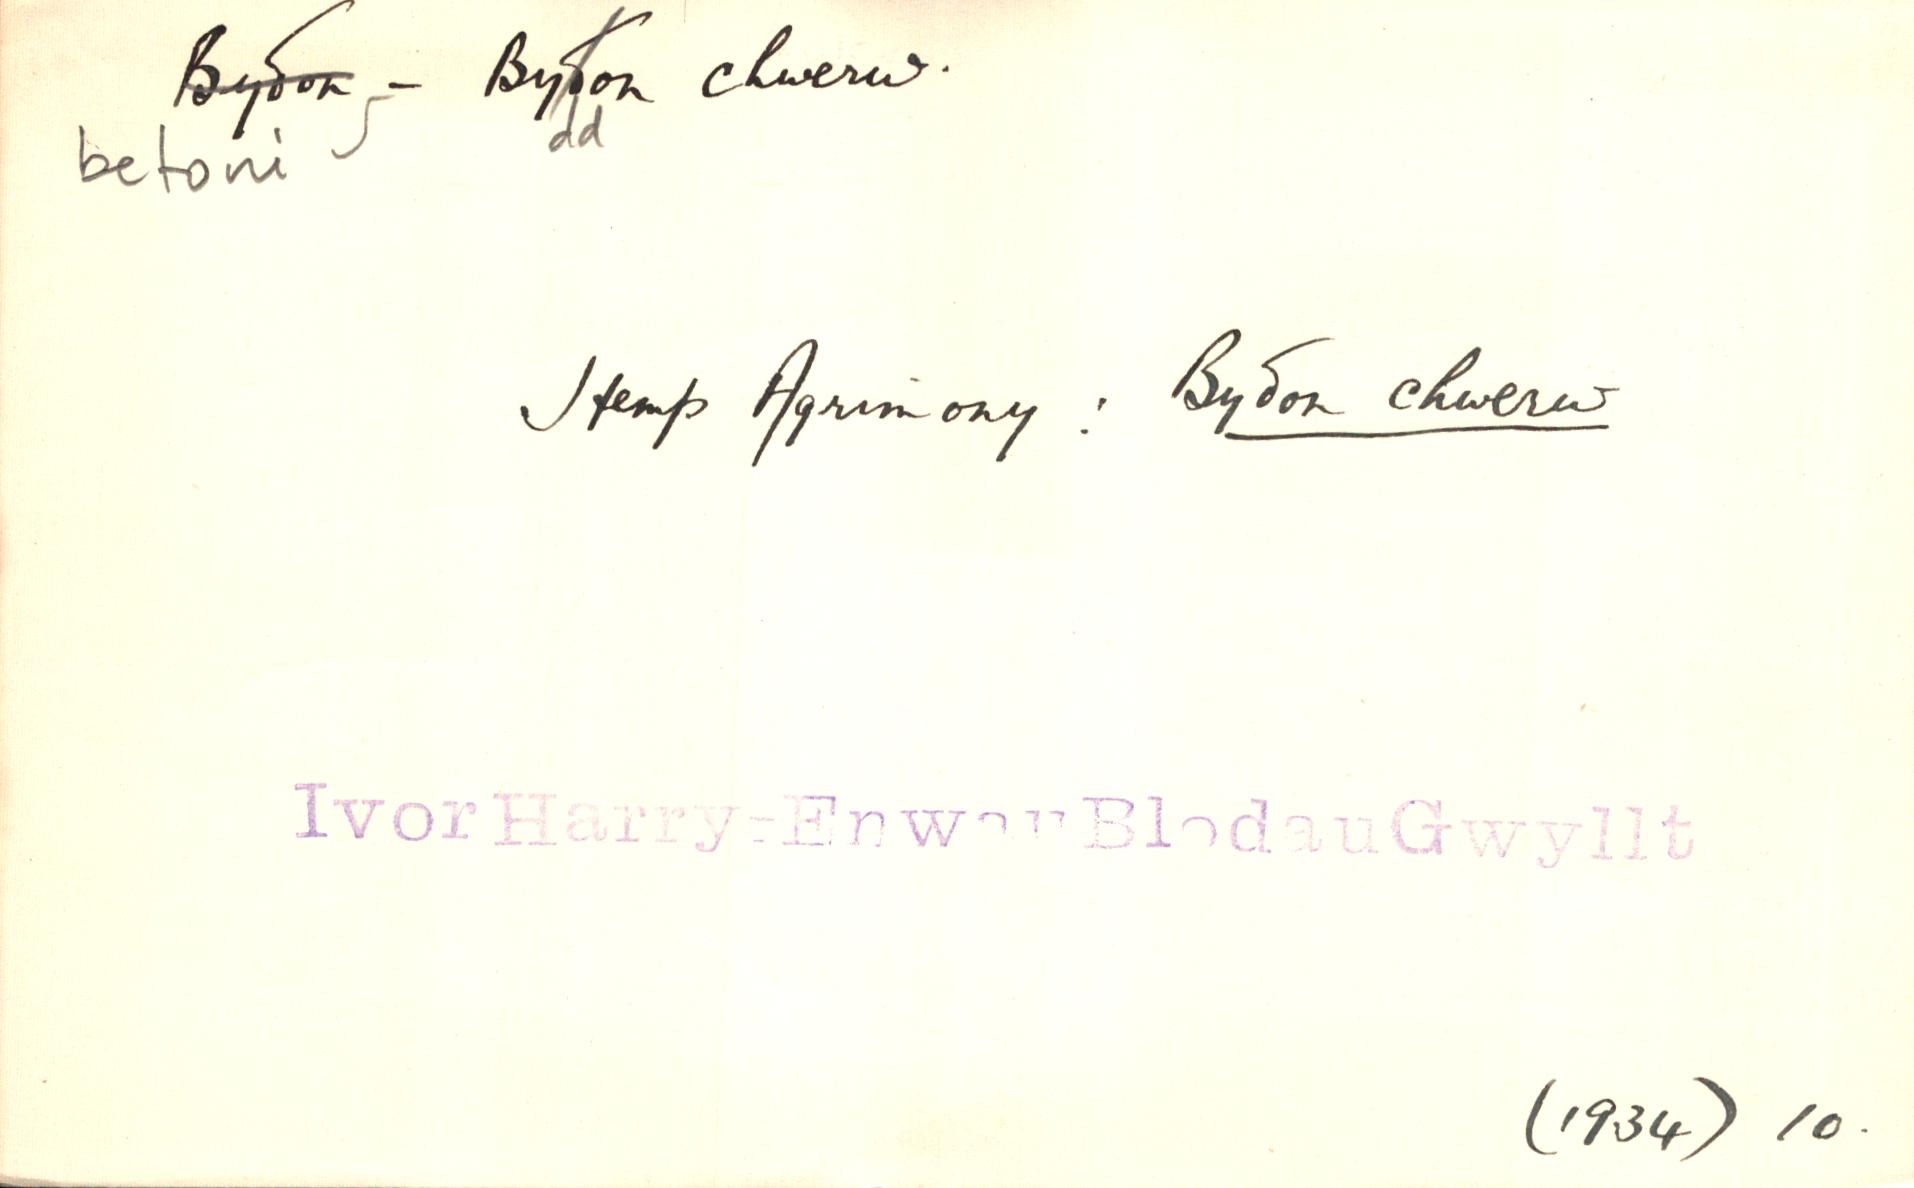 Byδon - Byδon chwerw.
betoni dd
Hemp Agrimony : Byδon chwerw
Ivor Harry-Enwau Blodau Gwyllt
(1934) 10.